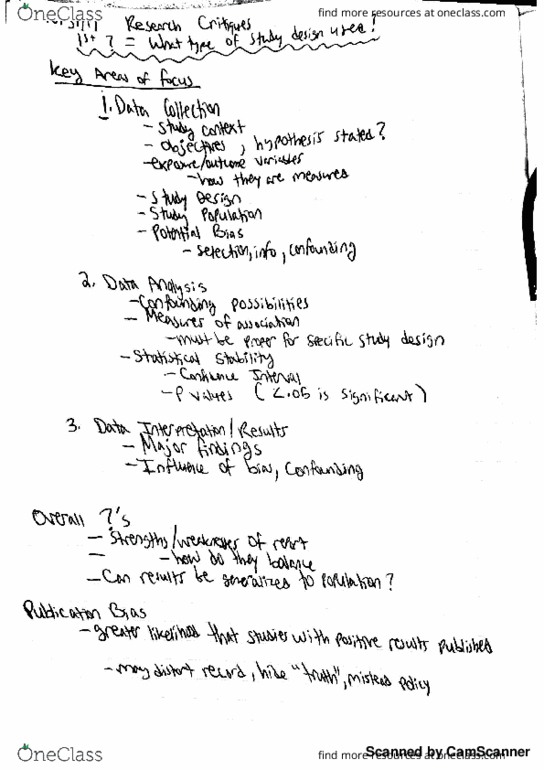 OneClass
find more resources at oneclass.com
Research Critiques
1st ? = What type of study design used!
Key Areas of focus
1. Data Collection
- Study context
- Objectives, hypothesis stated?
- exposure/outcome variables
- how they are measures
- Study Design
- Study Population
- Potential Bias
- selection, info, confounding
2. Data Analysis
- Confounding possibilities
- Measures of association
- must be proper for specific study design
- Statistical Stability
- Confidence Interval
- P values ( <.05 is significant )
3. Data Interpretation/Results
- Major findings
- Influence of bias, Confounding
Overall ?'s
- Strengths/weaknesses of
- how do they balance
- Can results be generalizes to population?
Publication Bias
- greater likelihood that studies with positive results published
- may distort record, hide "truth", mislead policy
OneClass
find more resources at oneclass.com
Scanned by CamScanner